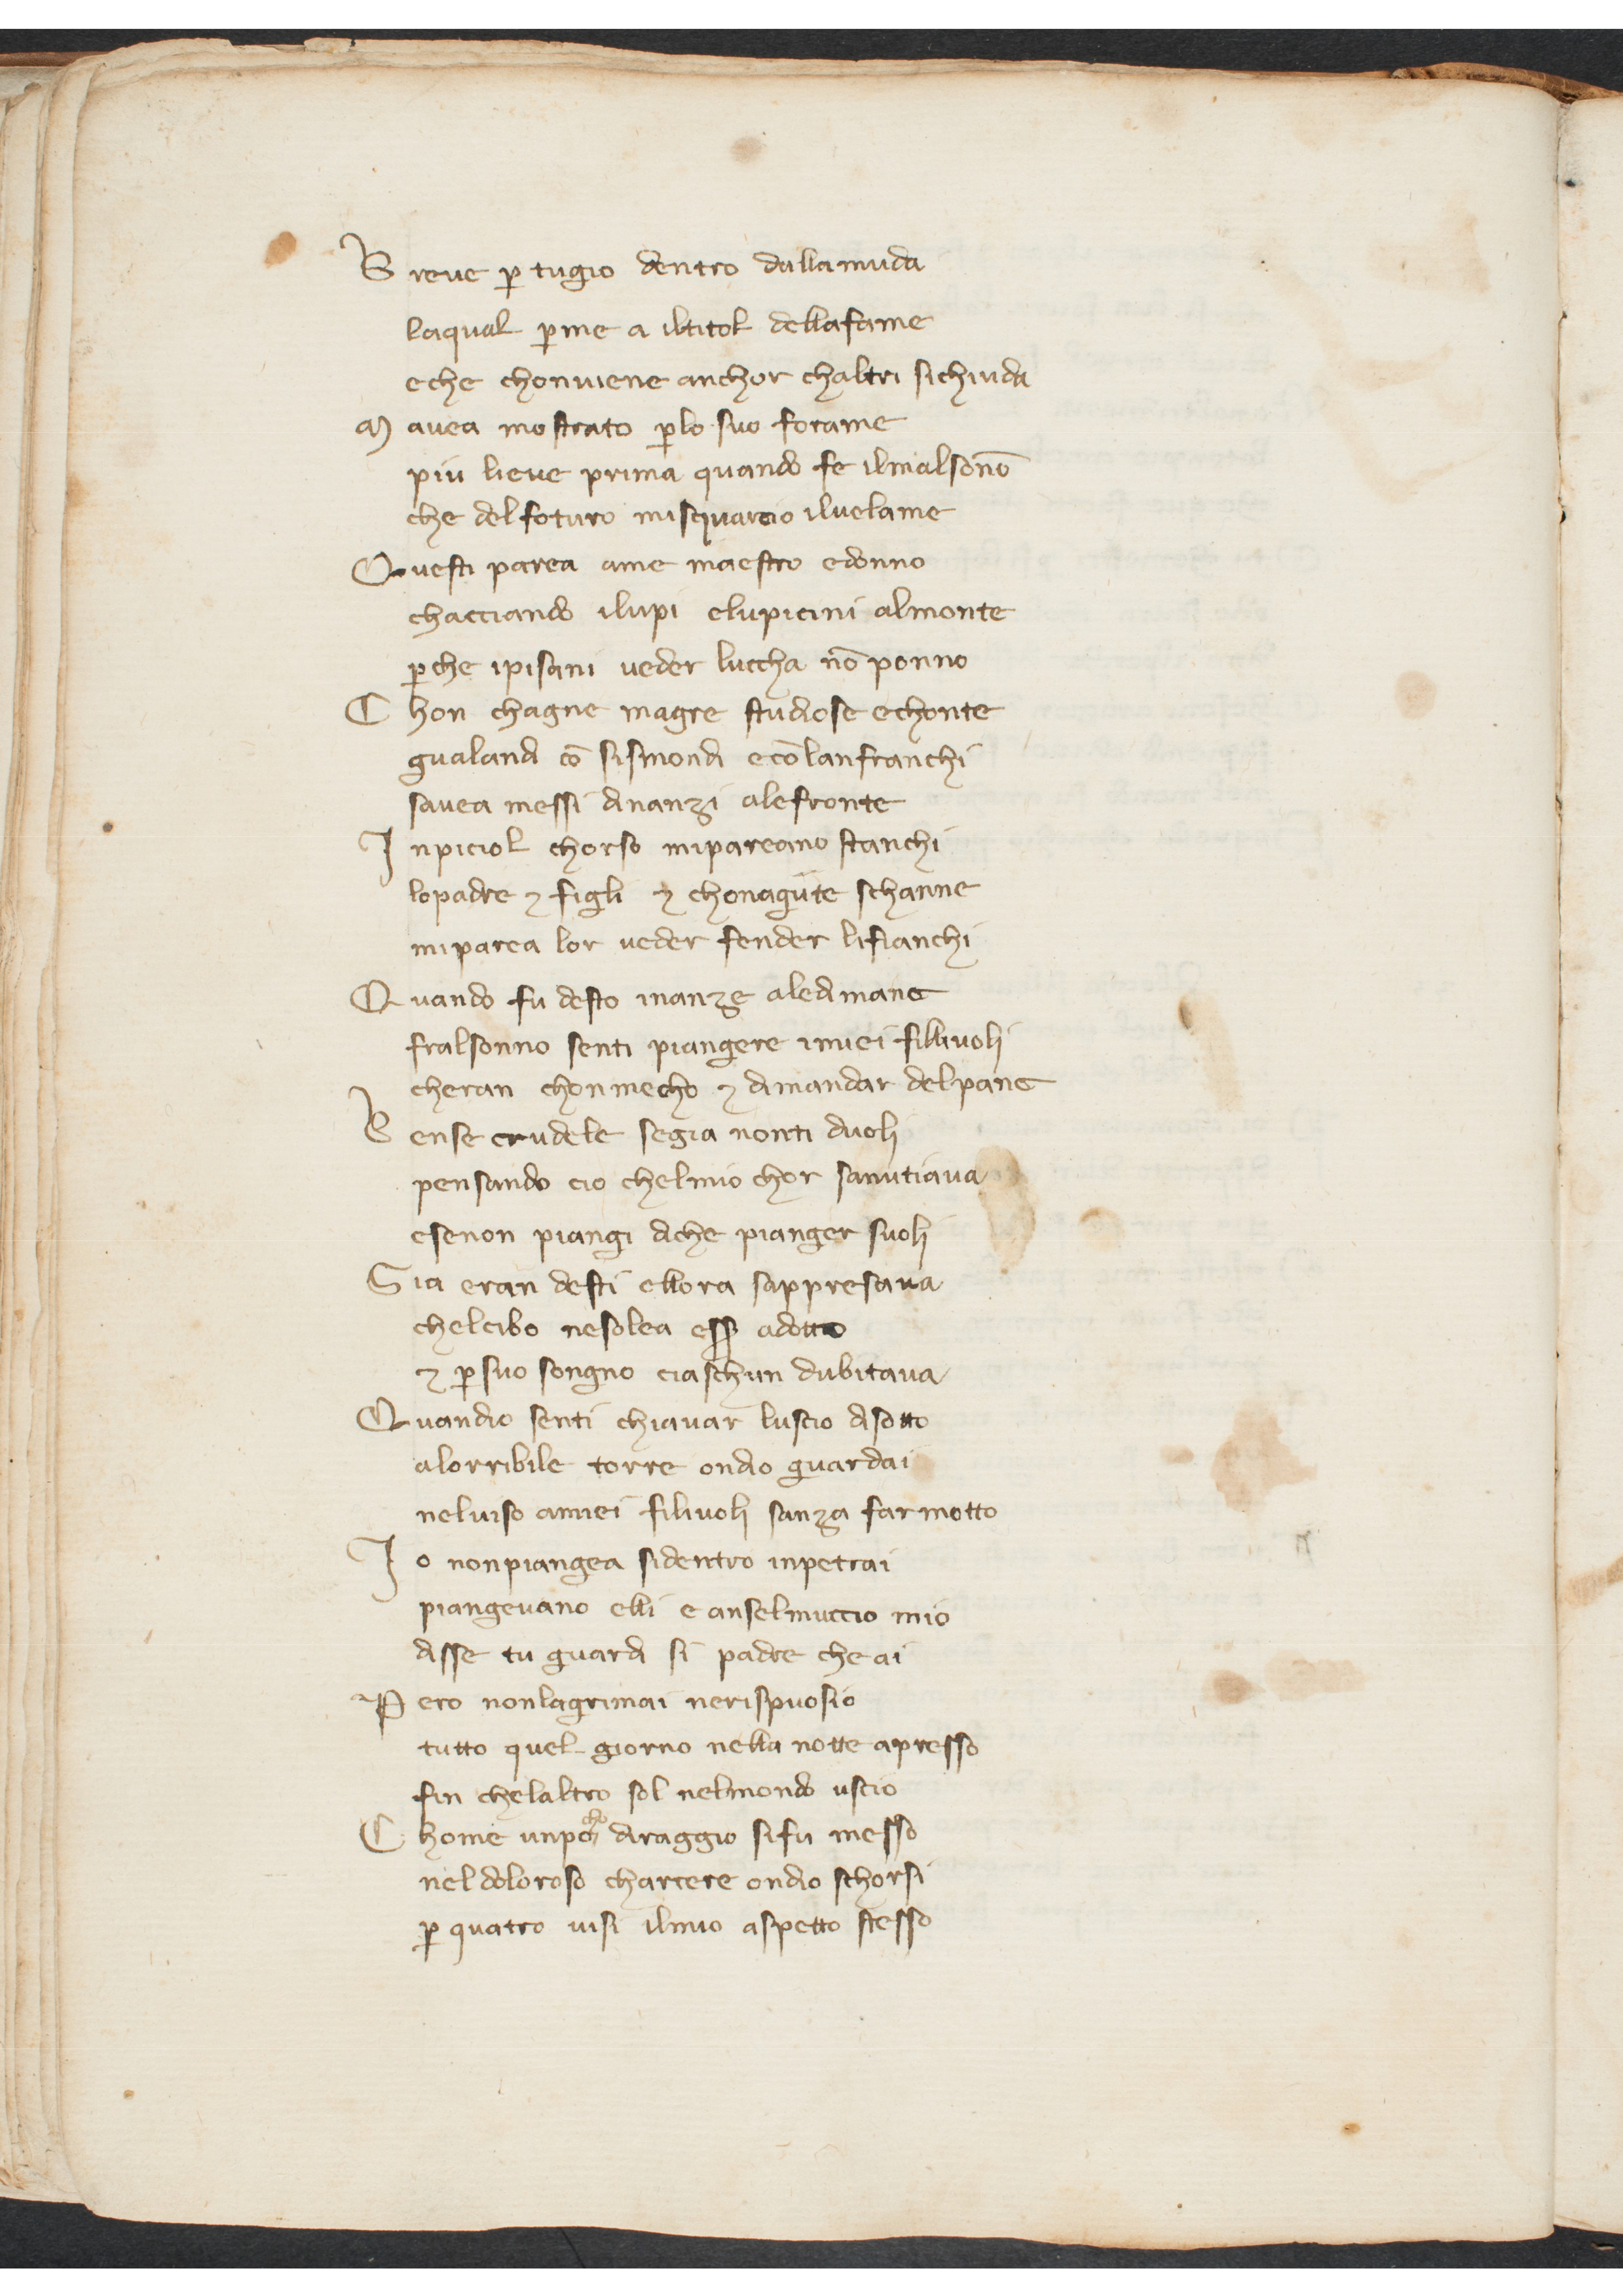 B reue ꝑ tugio dentro dallamuda
laqual ꝑme a iltitol dellafame
eche chonuiene anchor chaltri sichiuda
M auea mostrato ꝑlo suo forame
piu lieue prima quando fe ilmalsonō
che delfoturo misquarcio iluelame
Q uesti parea ame maestro edonno
chacciando ilupi elupicini almonte
ꝑche ipisani ueder luccha nō ponno
C hon chagne magre studiose echonte
gualandi cō sismondi ecō lanfranchi
sauea messi dinanzi alefronte
I npiciol chorso mipareano stanchi
lopadre ⁊ figli ⁊ chonagute schanne
miparea lor ueder fender lifianchi
Q uando fu desto inanze aledimane
fralsonno senti piangere imiei filliuoli
cheran chonmecho ⁊ dimandar delpane
B ense crudele segia nonti duoli
pensando cio chelmio chor sanutiaua
esenon piangi diche pianger suoli
G ia eran desti ellora sappresaua
chelcibo nesolea esſ adotto
⁊ ꝑ suo songno ciaschun dubitaua
Q uandio senti chiauar luscio disotto
alorribile torre ondio guardai
neluiso amiei filiuoli sanza far motto
I o nonpiangea sidentro inpetrai
piangeuano elli e anselmuccio mio
disse tu guardi si padre che ai
P ero nonlagrimai nerispuosio
tutto quel giorno nella notte apresso
fin chelaltro sol nelmondo uscio
C home unpocho diraggio sifu messo
nel doloroso charcere ondio schorsi
ꝑ quatro uisi ilmio aspetto stesso